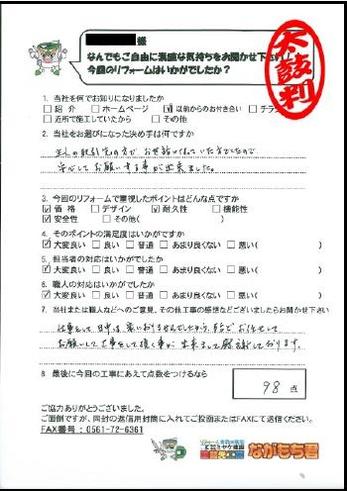 様
なんでもご自由に素直な気持ちをお聞かせ下さい
今回のリフォームはいかがでしたか？
太鼓判
1. 当社を何でお知りになりましたか
□ 紹介 □ ホームページ ☑ 以前からのお付き合い □ チラシ
□ 近所で施工していたから □ その他
2. 当社をお選びになった決め手は何ですか
主人の取引先の方が お世話になっていた方でしたので
安心してお願いする事が出来ました。
3. 今回のリフォームで重視したポイントはどんな点ですか
☑ 価格 □ デザイン ☑ 耐久性 □ 機能性
☑ 安全性 □ その他( )
4. そのポイントの満足度はいかがですか
☑ 大変良い □ 良い □ 普通 □ あまり良くない □ 悪い( )
5. 担当者の対応はいかがでしたか
☑ 大変良い □ 良い □ 普通 □ あまり良くない □ 悪い( )
6. 職人の対応はいかがでしたか
☑ 大変良い □ 良い □ 普通 □ あまり良くない □ 悪い( )
7. 当社または職人などへのご意見、その他工事の感想などございましたらお聞かせ下さい
仕事をして日中は家におりませんでしたから お任せして
お願いして工事をして頂く事が出来まして感謝しております。
8. 最後に今回の工事にあえて点数をつけるなら
98 点
ご協力ありがとうございました。
ご面倒ですが、同封の返信用封筒に入れてご投函またはFAXにて送信ください。
FAX番号：0561-72-6361
ながもち君